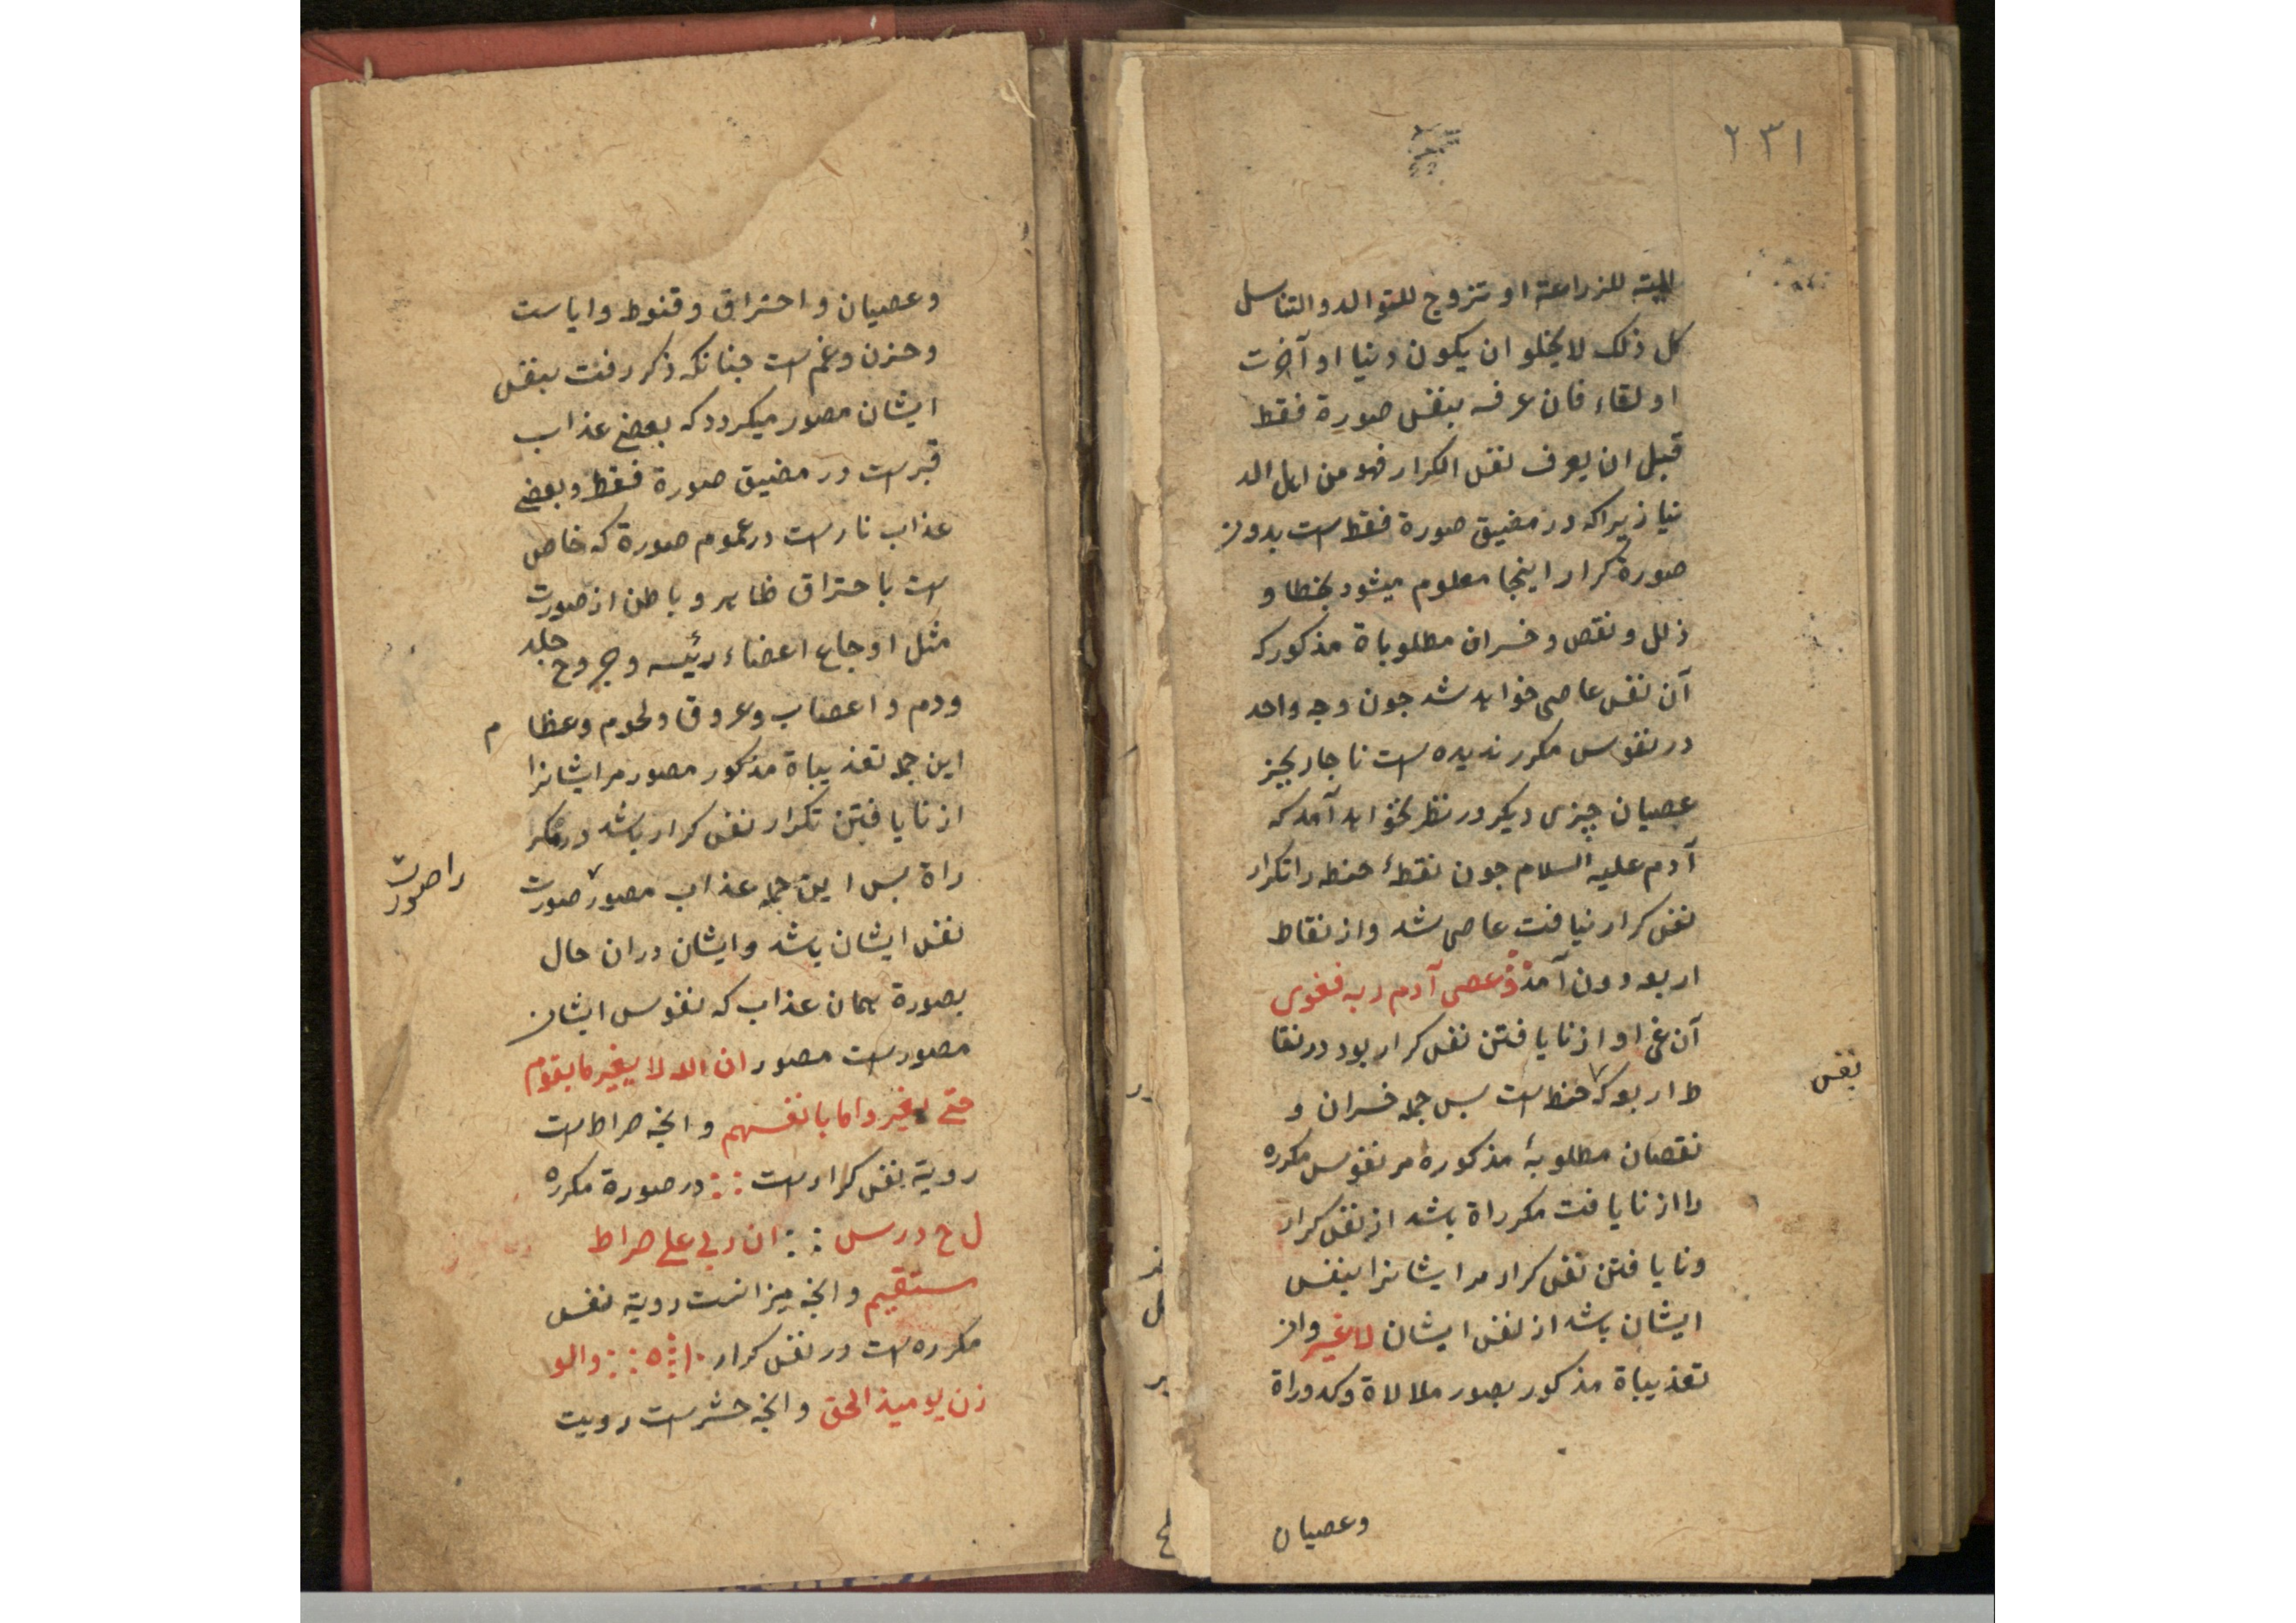 ٢٣١
المیته للزراعة او تزوج للتوالد والتناسل
کل ذلک لا یخلو ان یکون دنیا او آخرت
او لقاء فان عرفه بنفس صورة فقط
قبل ان یعرف نفس الکرار فهو من اهل الد
نیا زیرا که در مضیق صورة فقط است بدون
صورة کرار اینجا معلوم میشود بخطا و
زلل و نقص و خسران مطلوباة مذکور که
آن نفس عاصی خواهد شد جون وجه واحد
در نفوس مکرر ندیده است ناجار بجز
عصیان چیزی دیکر در نظر نخواهد آمد که
آدم علیه السلام جون نقطهٔ حنطه را تکرار
نفس کرار نیافت عاصی شد و از نقاط
اربعه دون آمد وعصی آدم ربه فغوی
آن غی او از نایافتن نفس کرار بود در نقا
ط اربعه که حنط است بس جمله خسران و
نفس
نقصان مطلوبهٔ مذکوره مر نفوس مکرره
را از نایافت مکرراة باشد از نفس کرار
و نایافتن نفس کرار مر ایشانرا بنفس
ایشان باشد از نفس ایشان لا غیر و از
تعذیباة مذکور بصور ملالاة و کدوراة
وعصیان
وعصیان و احتراق و قنوط و ایاست
و حزن و غم است جنانکه ذکر رفت بنفس
ایشان مصور میکردد که بعضی عذاب
قبرست در مضیق صورة فقط و بعضی
عذاب نارست در عموم صورة که خاص
است باحتراق ظاهر و باطن از صورت
مثل اوجاع اعضاء رئیسه و جروح جلد
و دم و اعصاب و عروق و لحوم و عظام
این جمله تعذیباة مذکور مصور مر ایشانرا
از نایافتن تکرار نفس کرار باشد در مکر
راة بس این جمله عذاب مصور صورت
را صورت
نفس ایشان باشد و ایشان دران حال
بصورة همان عذاب که نفوس ایشان
مصورست مصور ان الله لا یغیر ما بقوم
حتی یغیروا ما بانفسهم و انجه صراط است
رویة نفس کرارست در صورة مکرره
ل ح درس ان ربی علی صراط
مستقیم و انجه میزانست رویة نفس
مکرره است در نفس کرار والو
زن یومیذ الحق و انجه حشرست رویت